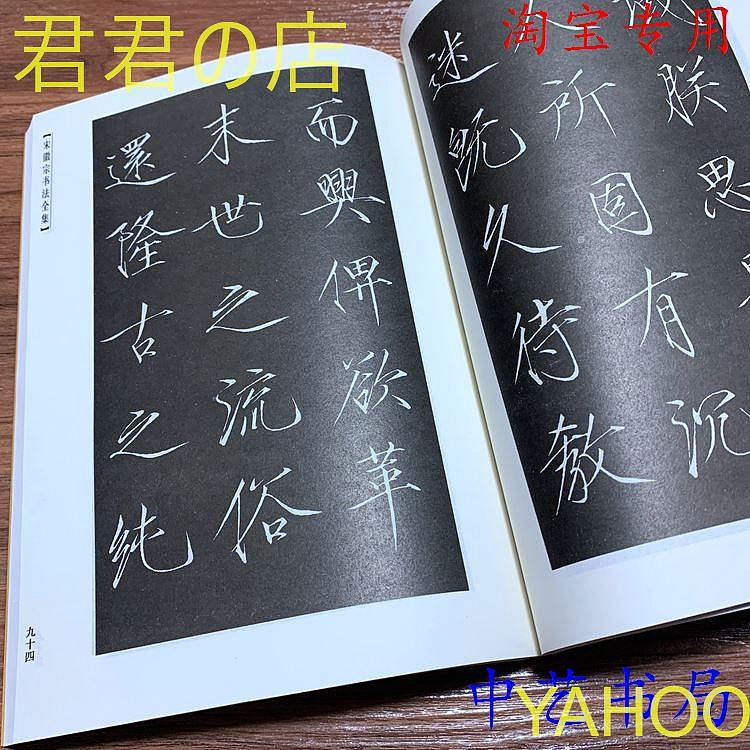 君君の店
淘宝专用
朕思
所固有沉
迷既久待教
而興俾欲革
末世之流俗
還隆古之純
【宋徽宗书法全集】
九十四
中艺书局
YAHOO